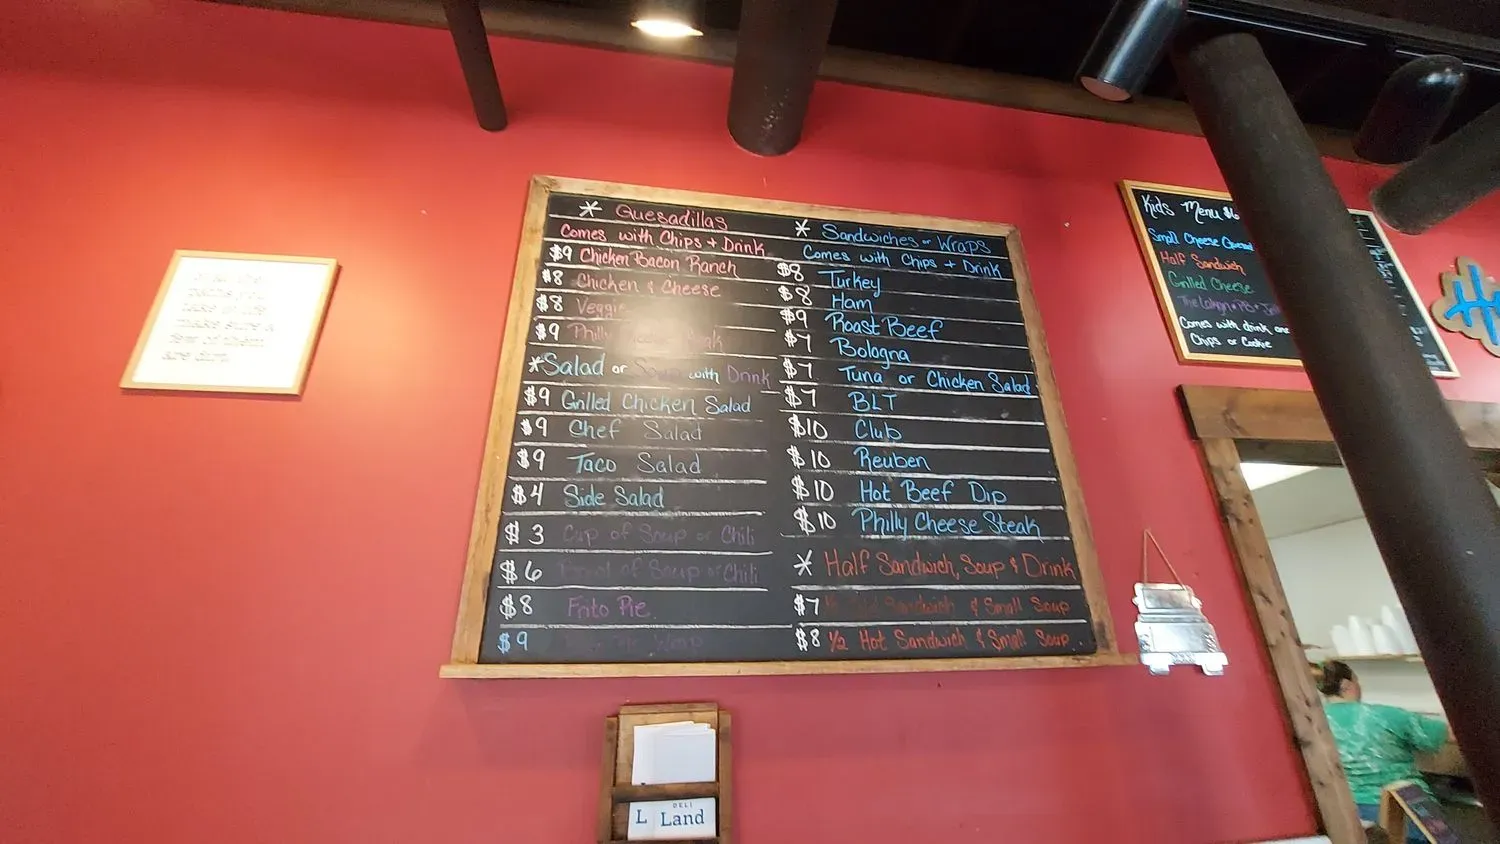 * Quesadillas
Comes with Chips + Drink
$9 Chicken Bacon Ranch
$8 Chicken & Cheese
$8 Veggie
$9 Philly
*Salad or Soup with Drink
$9 Grilled Chicken Salad
$9 Chef Salad
$9 Taco Salad
$4 Side Salad
$3 Cup of Soup or Chili
$6 Bowl of Soup or Chili
$8 Frito Pie
$9 Wrap
* Sandwiches or Wraps
Comes with Chips + Drink
$8 Turkey
$8 Ham
$9 Roast Beef
$7 Bologna
$7 Tuna or Chicken Salad
$7 BLT
$10 Club
$10 Reuben
$10 Hot Beef Dip
$10 Philly Cheese Steak
* Half Sandwich, Soup & Drink
$7 Sandwich & Small Soup
$8 1/2 Hot Sandwich & Small Soup
Kids Menu $6
Small Cheese
Half Sandwich
Grilled Cheese
Comes with drink and
Chips or Cookie
DELI
L Land